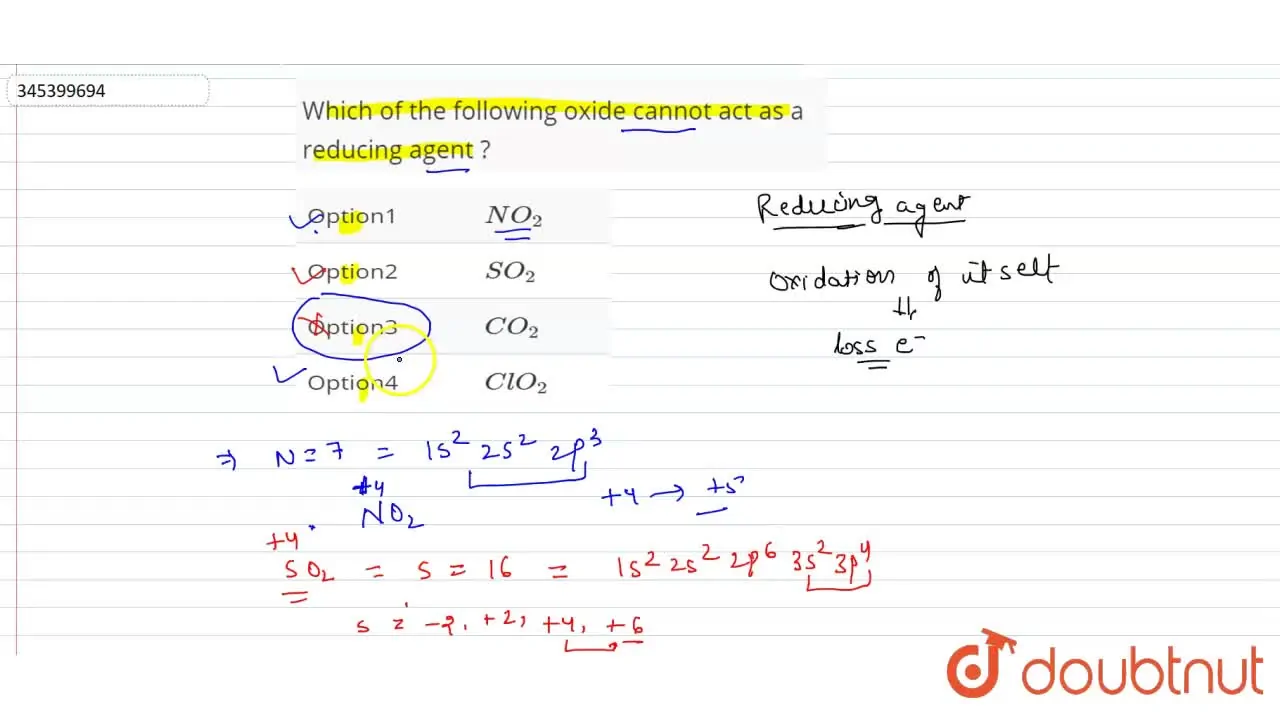 345399694
Which of the following oxide cannot act as a
reducing agent ?
Option1 NO₂
Option2 SO₂
Option3 CO₂
Option4 ClO₂
Reducing agent
Oxidation of itself
loss e⁻
⇒ N = 7 = 1s² 2s² 2p³
+4
NO₂
+4 → +5
+4
SO₂ = S = 16 = 1s² 2s² 2p⁶ 3s² 3p⁴
s = -2, +2, +4, +6
doubtnut